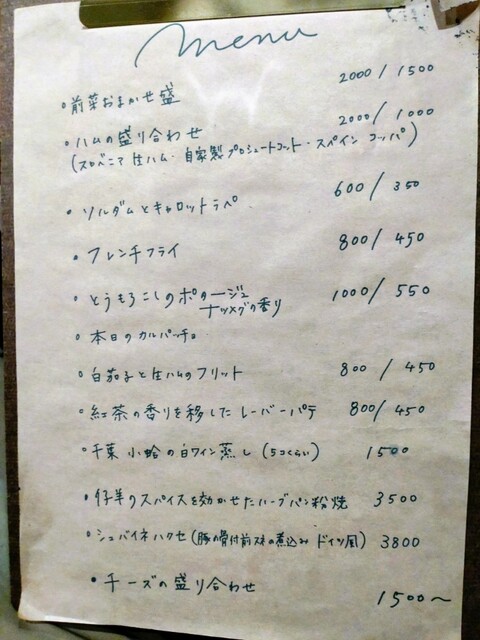 menu
・前菜おまかせ盛 2000/1500
・ハムの盛り合わせ 2000/1000
(スロベニア生ハム・自家製プロシュートコット・スペイン コッパ)
・ソルダムとキャロットラペ 600/350
・フレンチフライ 800/450
・とうもろこしのポタージュ 1000/550
ナツメグの香り
・本日のカルパッチョ
・白茄子と生ハムのフリット 800/450
・紅茶の香りを移したレーバーパテ 800/450
・千葉 小蛤の白ワイン蒸し (5コくらい) 1500
・仔羊のスパイスを効かせたハーブパン粉焼 3500
・シュバイネハクセ (豚の骨付前スネの煮込み ドイツ風) 3800
・チーズの盛り合わせ 1500〜